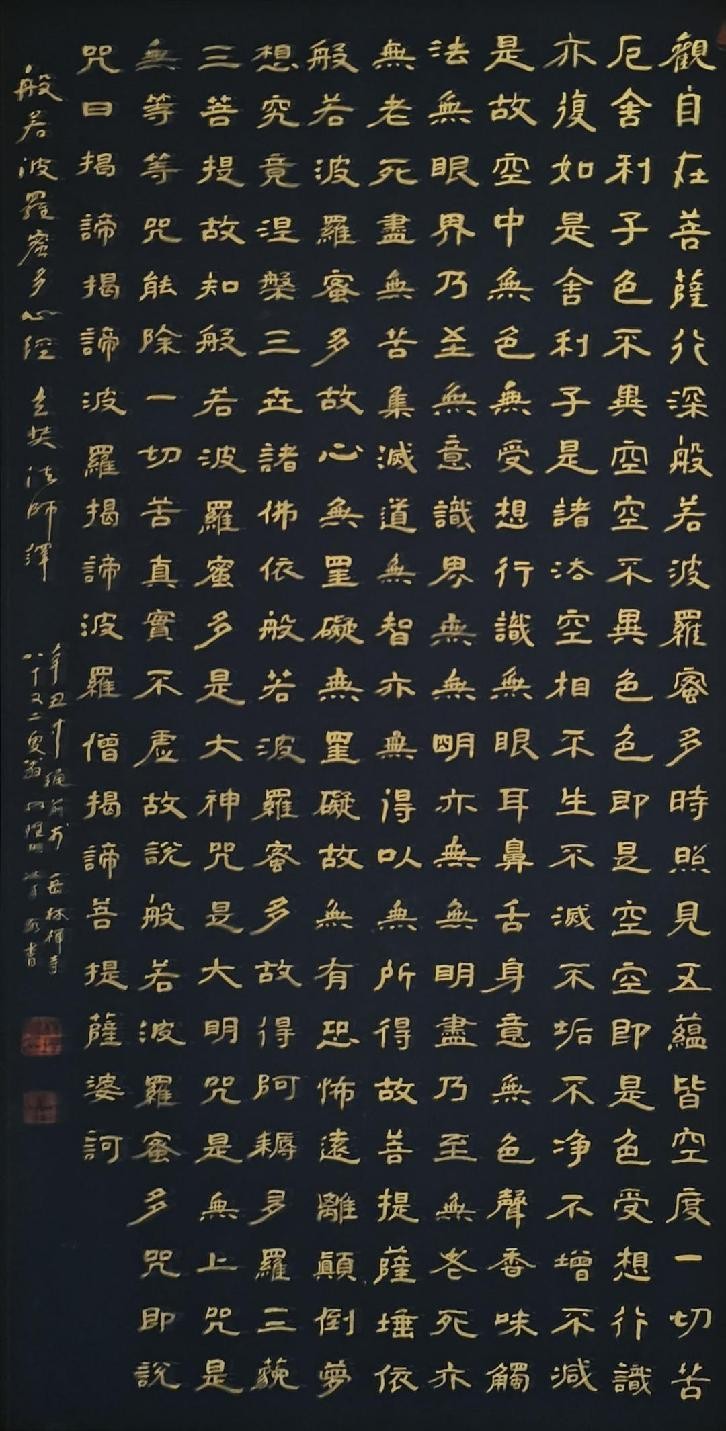 觀自在菩薩行深般若波羅蜜多時照見五蘊皆空度一切苦
厄舍利子色不異空空不異色色即是空空即是色受想行識
亦復如是舍利子是諸法空相不生不滅不垢不净不增不減
是故空中無色無受想行識無眼耳鼻舌身意無色聲香味觸
法無眼界乃至無意識界無無明亦無無明盡乃至無老死亦
無老死盡無苦集滅道無智亦無得以無所得故菩提薩埵依
般若波羅蜜多故心無罣礙無罣礙故無有恐怖遠離顛倒夢
想究竟涅槃三世諸佛依般若波羅蜜多故得阿耨多羅三藐
三菩提故知般若波羅蜜多是大神咒是大明咒是無上咒是
無等等咒能除一切苦真實不虛故說般若波羅蜜多咒即說
咒曰揭諦揭諦波羅揭諦波羅僧揭諦菩提薩婆訶
般若波羅蜜多心經 玄奘法師譯
辛丑 林禪寺
八十又二叟 書